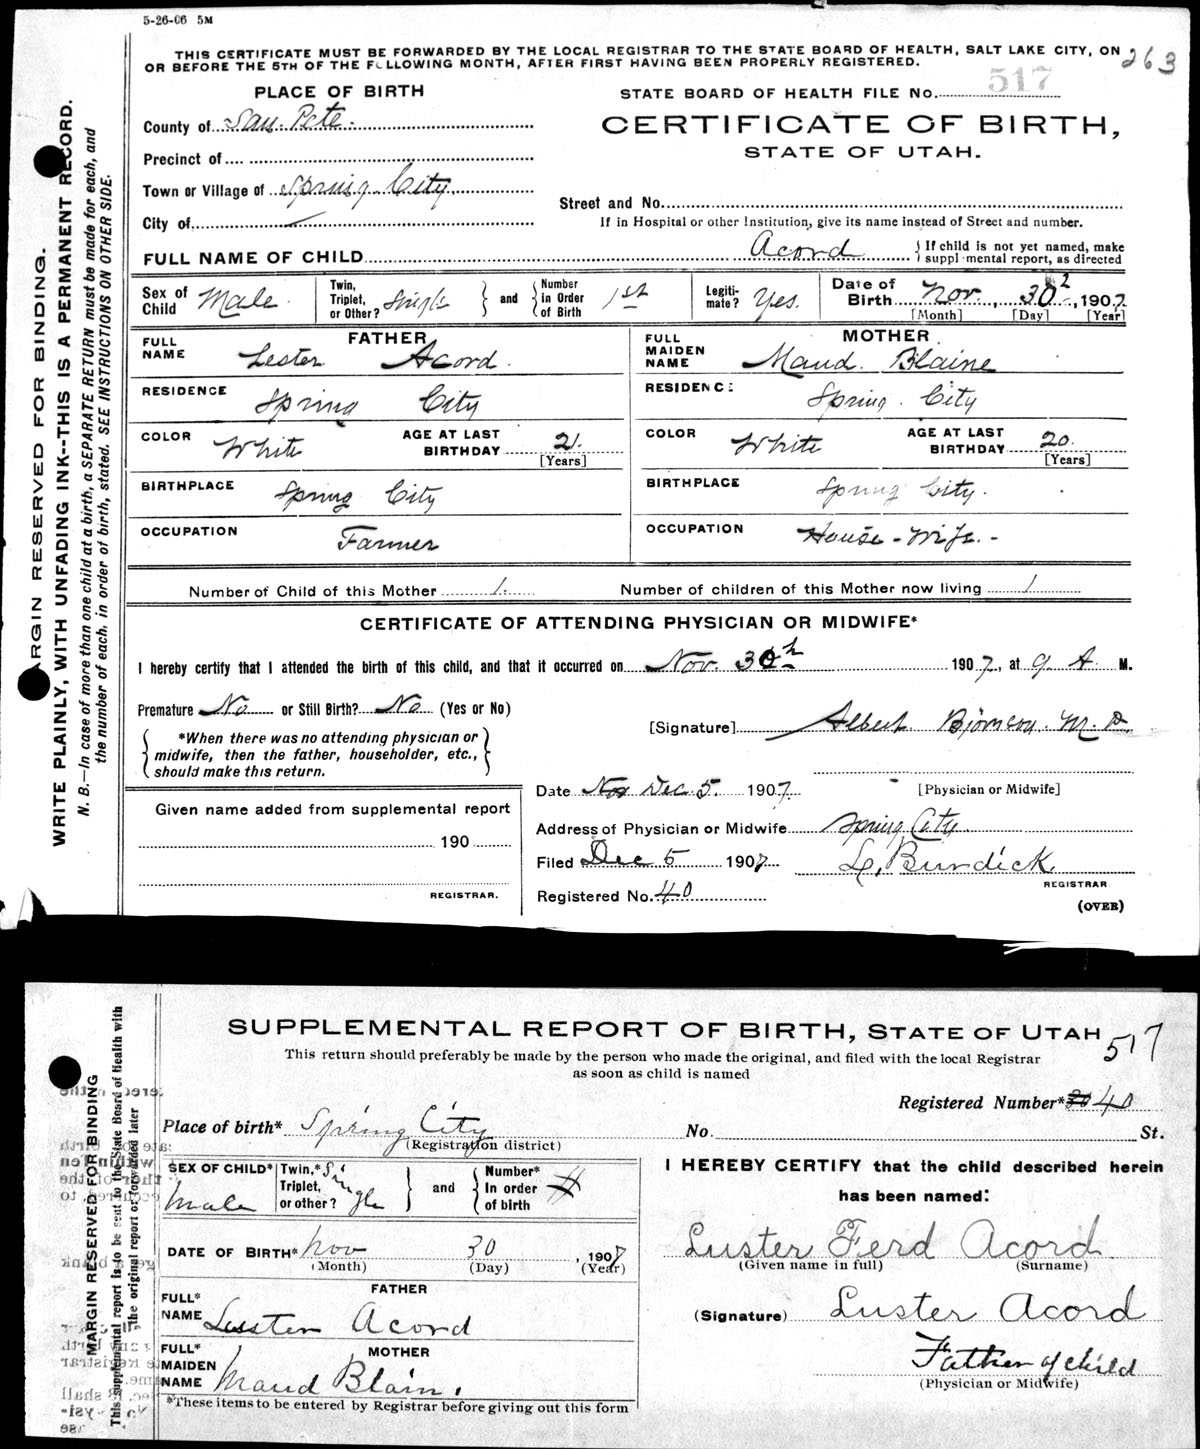 5-26-06 5M
THIS CERTIFICATE MUST BE FORWARDED BY THE LOCAL REGISTRAR TO THE STATE BOARD OF HEALTH, SALT LAKE CITY, ON
OR BEFORE THE 5TH OF THE FOLLOWING MONTH, AFTER FIRST HAVING BEEN PROPERLY REGISTERED.
263
PLACE OF BIRTH
STATE BOARD OF HEALTH FILE No. 517
County of San Pete.
CERTIFICATE OF BIRTH,
STATE OF UTAH.
Precinct of
Town or Village of Spring City
Street and No.
City of
If in Hospital or other Institution, give its name instead of Street and number.
FULL NAME OF CHILD Acord
If child is not yet named, make
suppl·mental report, as directed
Sex of Child Male
Twin, Triplet, or Other? Single and Number in Order of Birth 1st
Legiti-mate? Yes.
Date of Birth Nov. 30, 1907
[Month] [Day] [Year]
FATHER
FULL NAME Lester Acord.
RESIDENCE Spring City
COLOR White AGE AT LAST BIRTHDAY 21.
[Years]
BIRTHPLACE Spring City
OCCUPATION Farmer
MOTHER
FULL MAIDEN NAME Maud. Blaine
RESIDENCE Spring. City
COLOR White AGE AT LAST BIRTHDAY 20.
[Years]
BIRTHPLACE Spring City.
OCCUPATION House-Wife.-
Number of Child of this Mother 1. Number of children of this Mother now living 1
CERTIFICATE OF ATTENDING PHYSICIAN OR MIDWIFE*
I hereby certify that I attended the birth of this child, and that it occurred on Nov. 30th 1907, at 9 A M.
Premature No or Still Birth? No (Yes or No)
[Signature] Albert Bjornson. M.D.
*When there was no attending physician or
midwife, then the father, householder, etc.,
should make this return.
Date Nov Dec. 5. 1907.
[Physician or Midwife]
Given name added from supplemental report
190
REGISTRAR.
Address of Physician or Midwife Spring City.
Filed Dec 5 1907 L. Burdick
REGISTRAR
Registered No. 40
(OVER)
ARGIN RESERVED FOR BINDING.
WRITE PLAINLY, WITH UNFADING INK--THIS IS A PERMANENT RECORD.
N. B.—In case of more than one child at a birth, a SEPARATE RETURN must be made for each, and
the number of each, in order of birth, stated. SEE INSTRUCTIONS ON OTHER SIDE.
SUPPLEMENTAL REPORT OF BIRTH, STATE OF UTAH
517
This return should preferably be made by the person who made the original, and filed with the local Registrar
as soon as child is named
Registered Number* 40
Place of birth* Spring City No. St.
(Registration district)
SEX OF CHILD* Male
Twin,* Triplet, or other? Single and Number* In order of birth
DATE OF BIRTH* Nov 30, 1907
(Month) (Day) (Year)
FATHER
FULL* NAME Luster Acord
MOTHER
FULL* MAIDEN NAME Maud Blain.
*These items to be entered by Registrar before giving out this form
I HEREBY CERTIFY that the child described herein
has been named:
Luster Ferd Acord
(Given name in full) (Surname)
(Signature) Luster Acord
Father of child
(Physician or Midwife)
MARGIN RESERVED FOR BINDING
This supplemental report is to be sent to the State Board of Health with
the original report or forwarded later